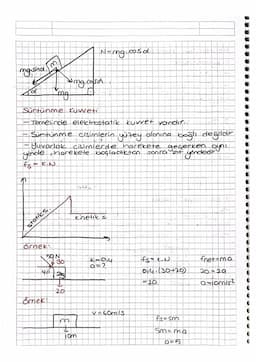 N=mg.cosα
mg.sinα
m
mg.cosα
α
mg
Sürtünme Kuvveti
- Temelinde elektrostatik kuvvet vardır.
- Sürtünme cisimlerin yüzey alanına bağlı değildir
- Yuvarlak cisimlerde harekete geçerken aynı
yönde, harekete başladıktan sonra zıt yöndedir.
fs = k.N
statik s
kinetik s
Örnek:
50N
30
40
20
k=0,4
a=?
fs = k.N
0,4.(30+20)
=20
fnet=ma
20=2a
a=10m/s²
Örnek:
m
10m
v=60m/s
fs=5m
5m=ma
a=5